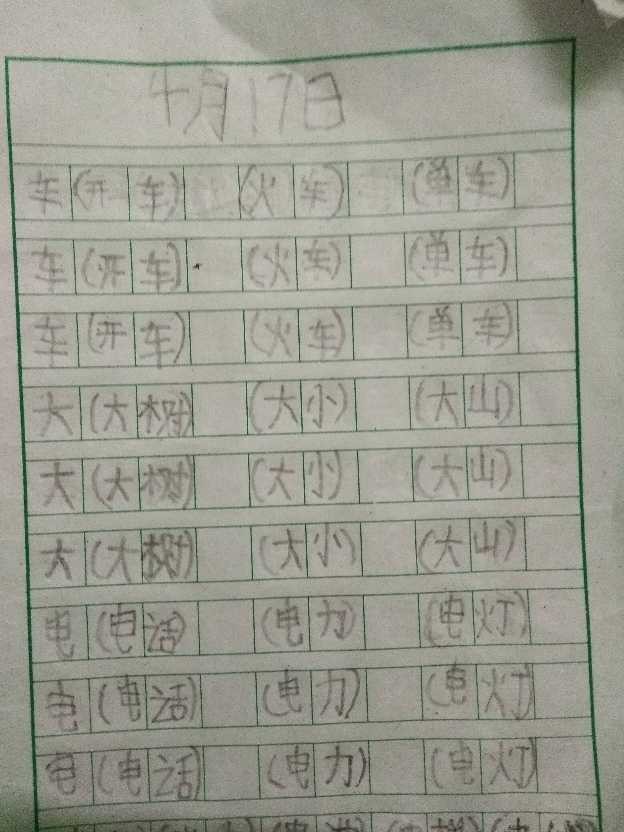 4月17日
车(开车) (火车) (单车)
车(开车) (火车) (单车)
车(开车) (火车) (单车)
大(大树) (大小) (大山)
大(大树) (大小) (大山)
大(大树) (大小) (大山)
电(电话) (电力) (电灯)
电(电话) (电力) (电灯)
电(电话) (电力) (电灯)